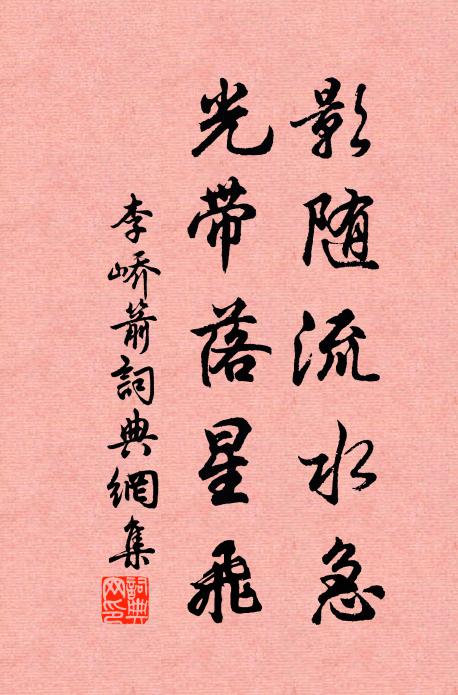 影随流水急
光带落星飛
李嶠箭詞典網集
詞典网印